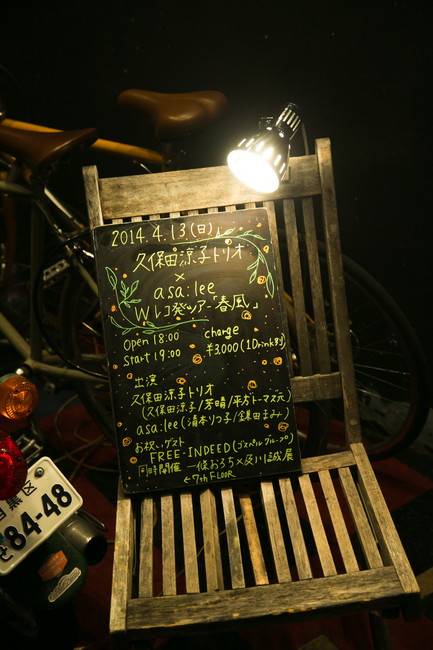 2014.4.13(日)
久保田涼子トリオ
×
asa:lee
Wレコ発ツアー「春風」
open 18:00 charge
start 19:00 ¥3,000(1Drink別)
出演
久保田涼子トリオ
(久保田涼子/芳晴/平方トーマス元)
asa:lee(清本りつ子/鎌田まみ)
お祝いゲスト
FREE-INDEED(ゴスペルグループ)
同時開催 一條おろち×及川誠展
←7th FLOOR
目黒区
84-48